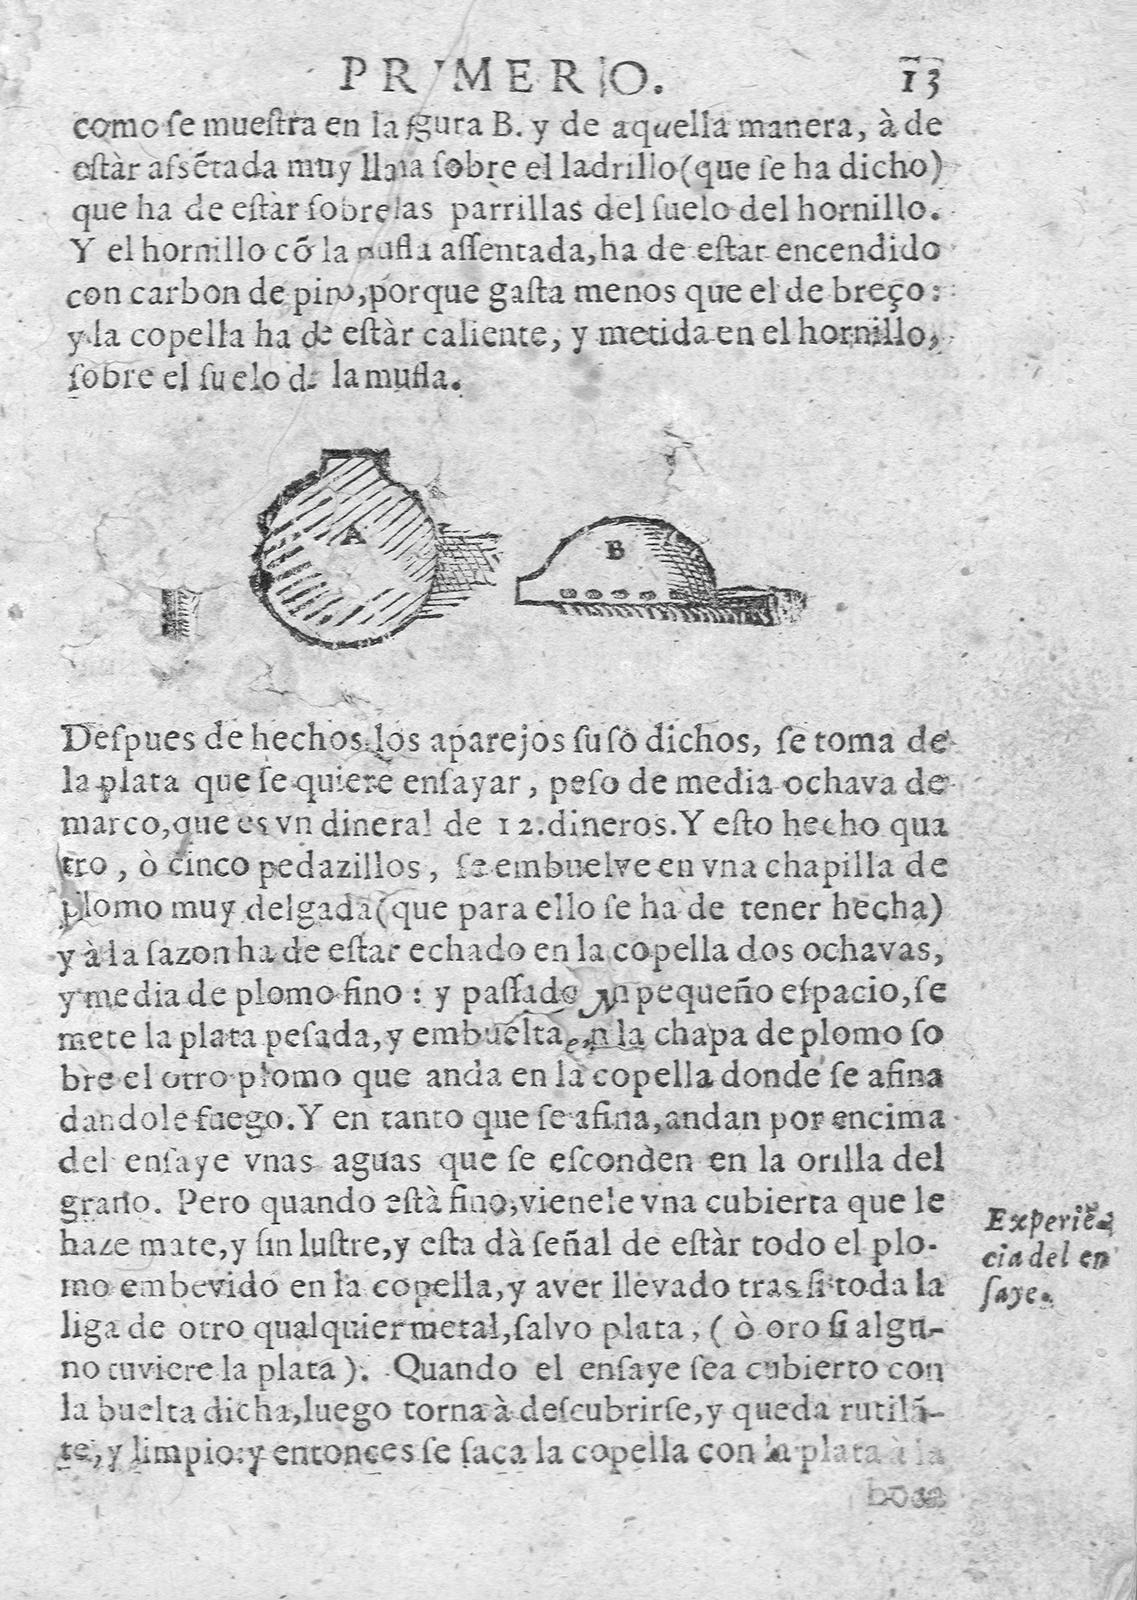 PRIMERO. 13
como ſe mueſtra en la figura B. y de aquella manera, à de
eſtàr aſsẽtada muy llana ſobre el ladrillo (que ſe ha dicho)
que ha de eſtàr ſobre las parrillas del ſuelo del hornillo.
Y el hornillo cõ la mufla aſſentada, ha de eſtar encendido
con carbon de pino, porque gaſta menos que el de breço:
y la copella ha de eſtàr caliente, y metida en el hornillo,
ſobre el ſuelo de la mufla.
A
B
Deſpues de hechos los aparejos ſuſo dichos, ſe toma de
la plata que ſe quiere enſayar, peſo de media ochava de
marco, que es vn dineral de 12. dineros. Y eſto hecho qua
tro, ò cinco pedazillos, ſe embuelve en vna chapilla de
plomo muy delgada (que para ello ſe ha de tener hecha)
y à la ſazon ha de eſtar echado en la copella dos ochavas,
y media de plomo fino: y paſſado vn pequeño eſpacio, ſe
mete la plata peſada, y embuelta en la chapa de plomo ſo
bre el otro plomo que anda en la copella donde ſe afina
dandole fuego. Y en tanto que ſe afina, andan por encima
del enſaye vnas aguas que ſe eſconden en la orilla del
grano. Pero quando eſtà fino, vienele vna cubierta que le
haze mate, y ſin luſtre, y eſta dà ſeñal de eſtàr todo el plo-
mo embevido en la copella, y aver llevado tras ſi toda la
liga de otro qualquier metal, ſalvo plata, (ò oro ſi algu-
no tuviere la plata). Quando el enſaye ſea cubierto con
la buelta dicha, luego torna à deſcubrirſe, y queda rutilã-
te, y limpio: y entonces ſe ſaca la copella con la plata à la
boca
Experiẽ
cia del en
ſaye.